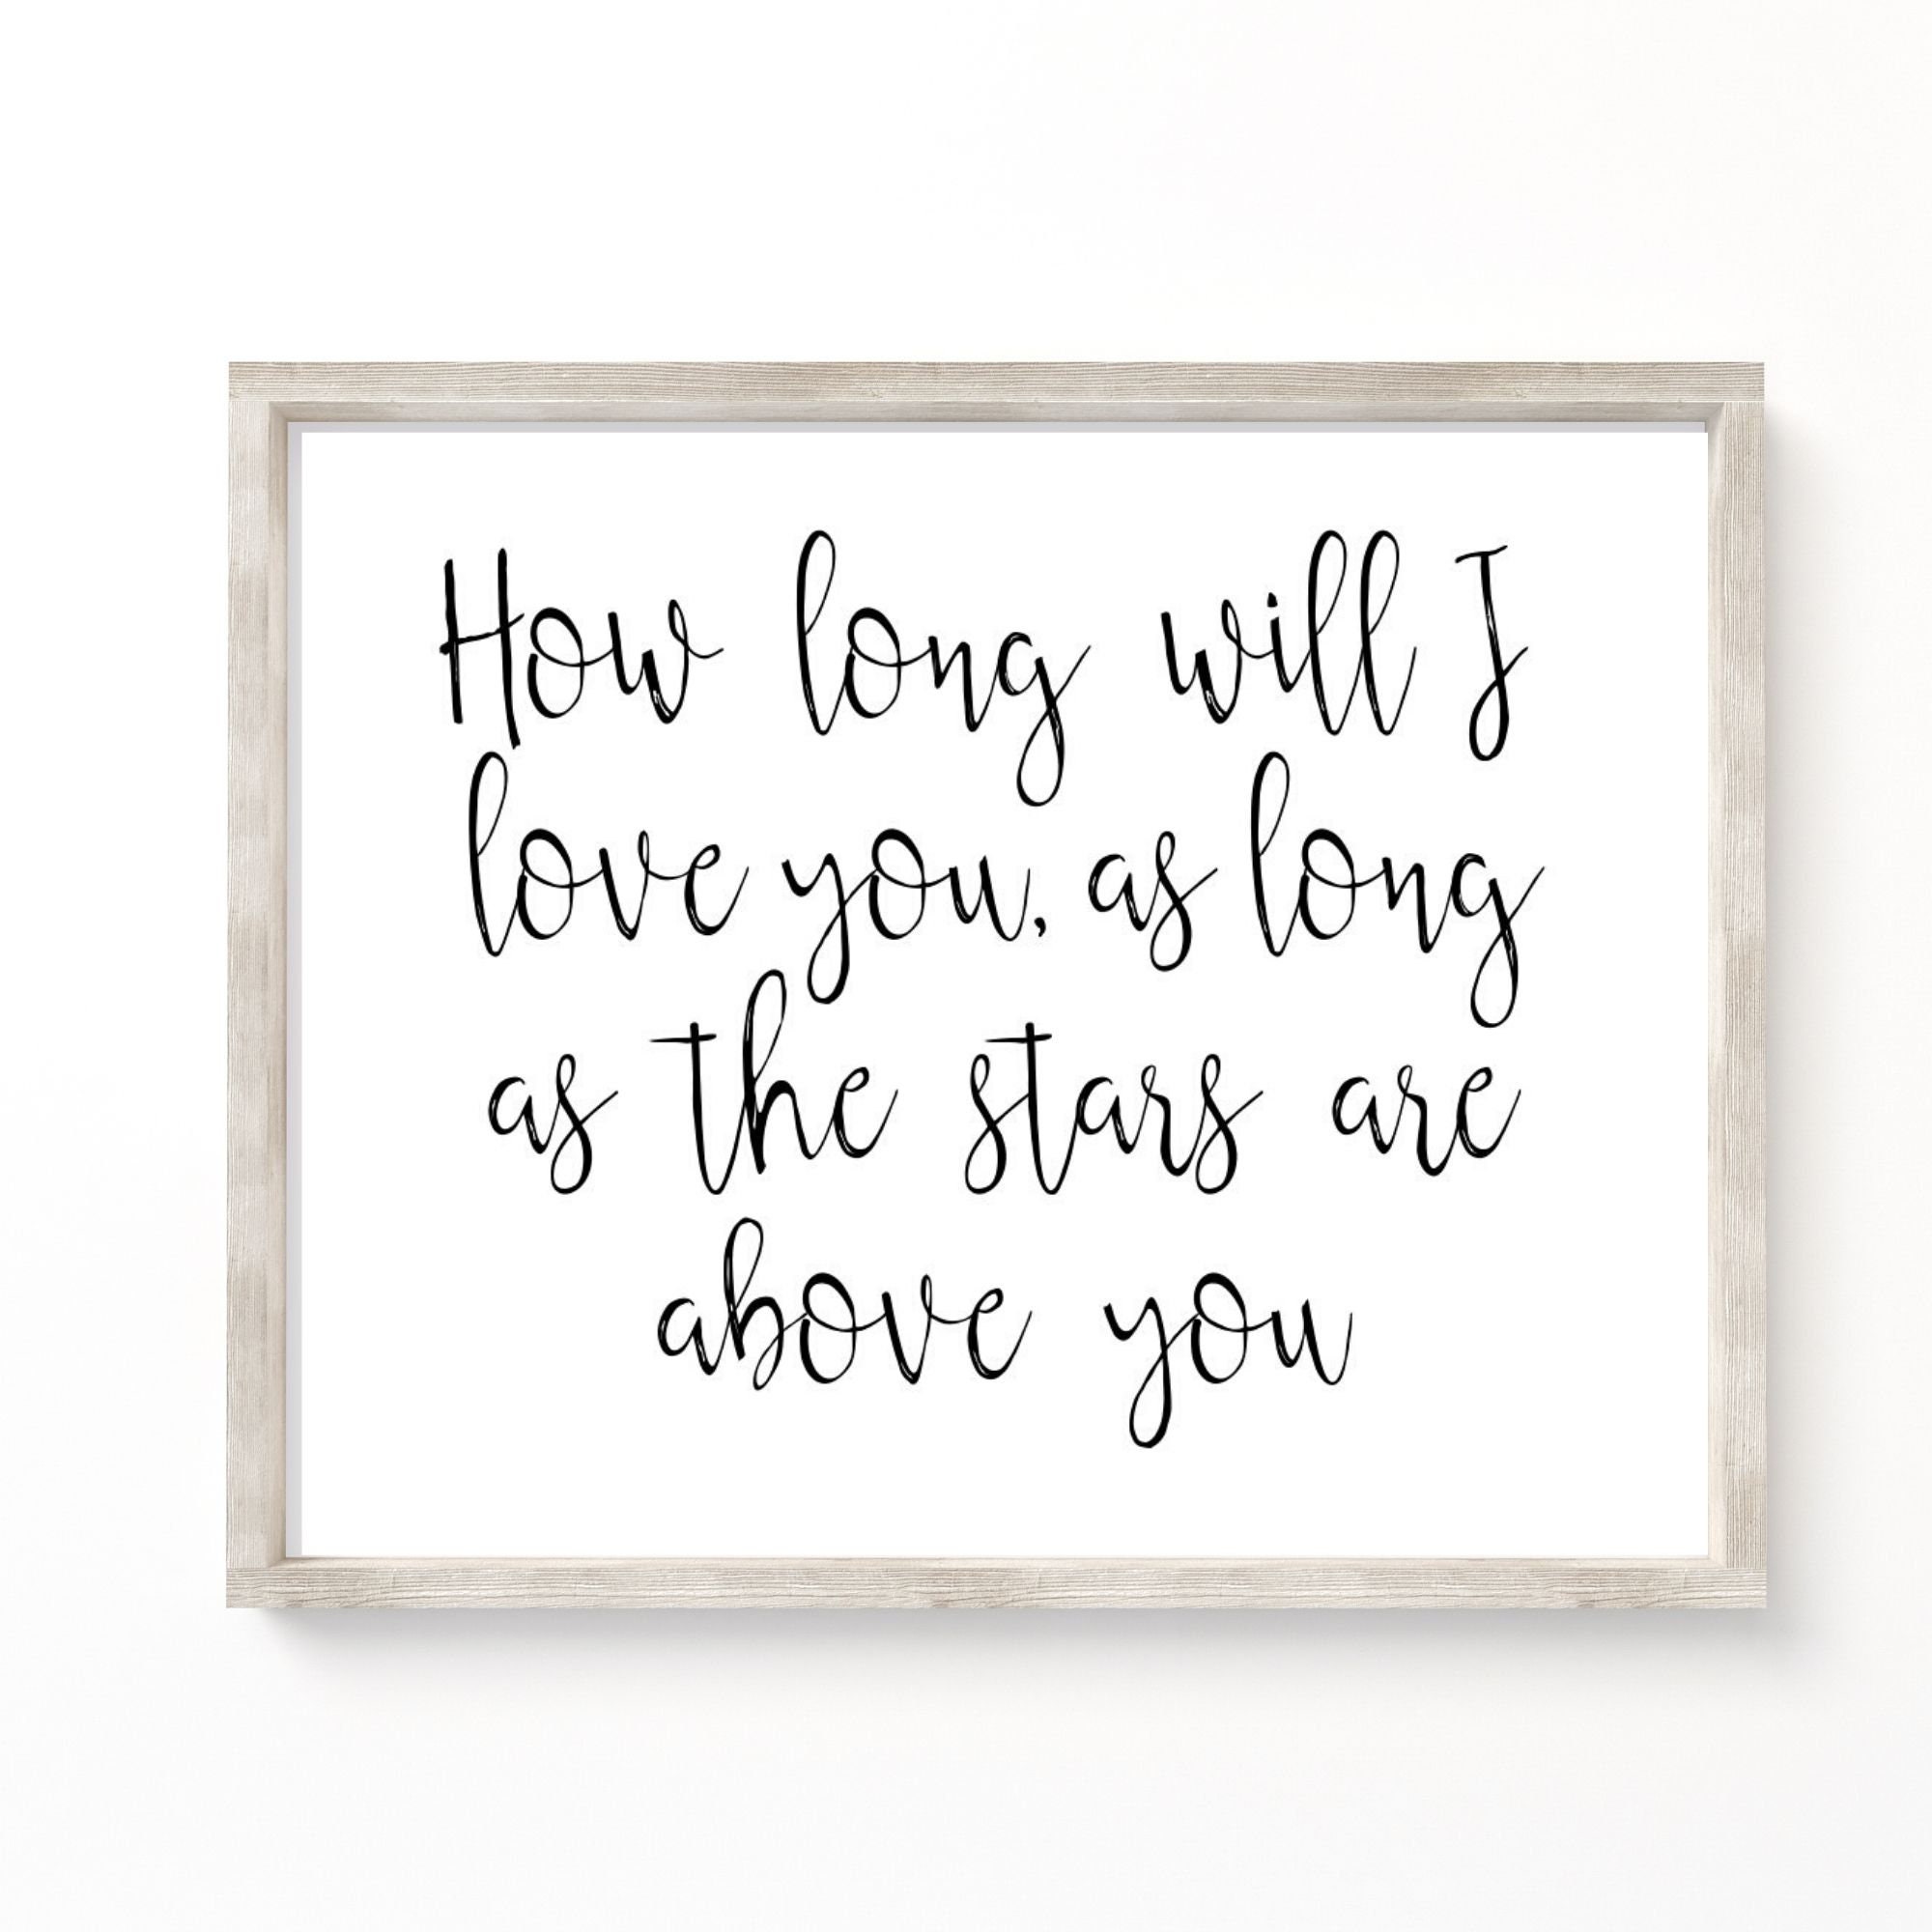 How long will I
love you, as long
as the stars are
above you